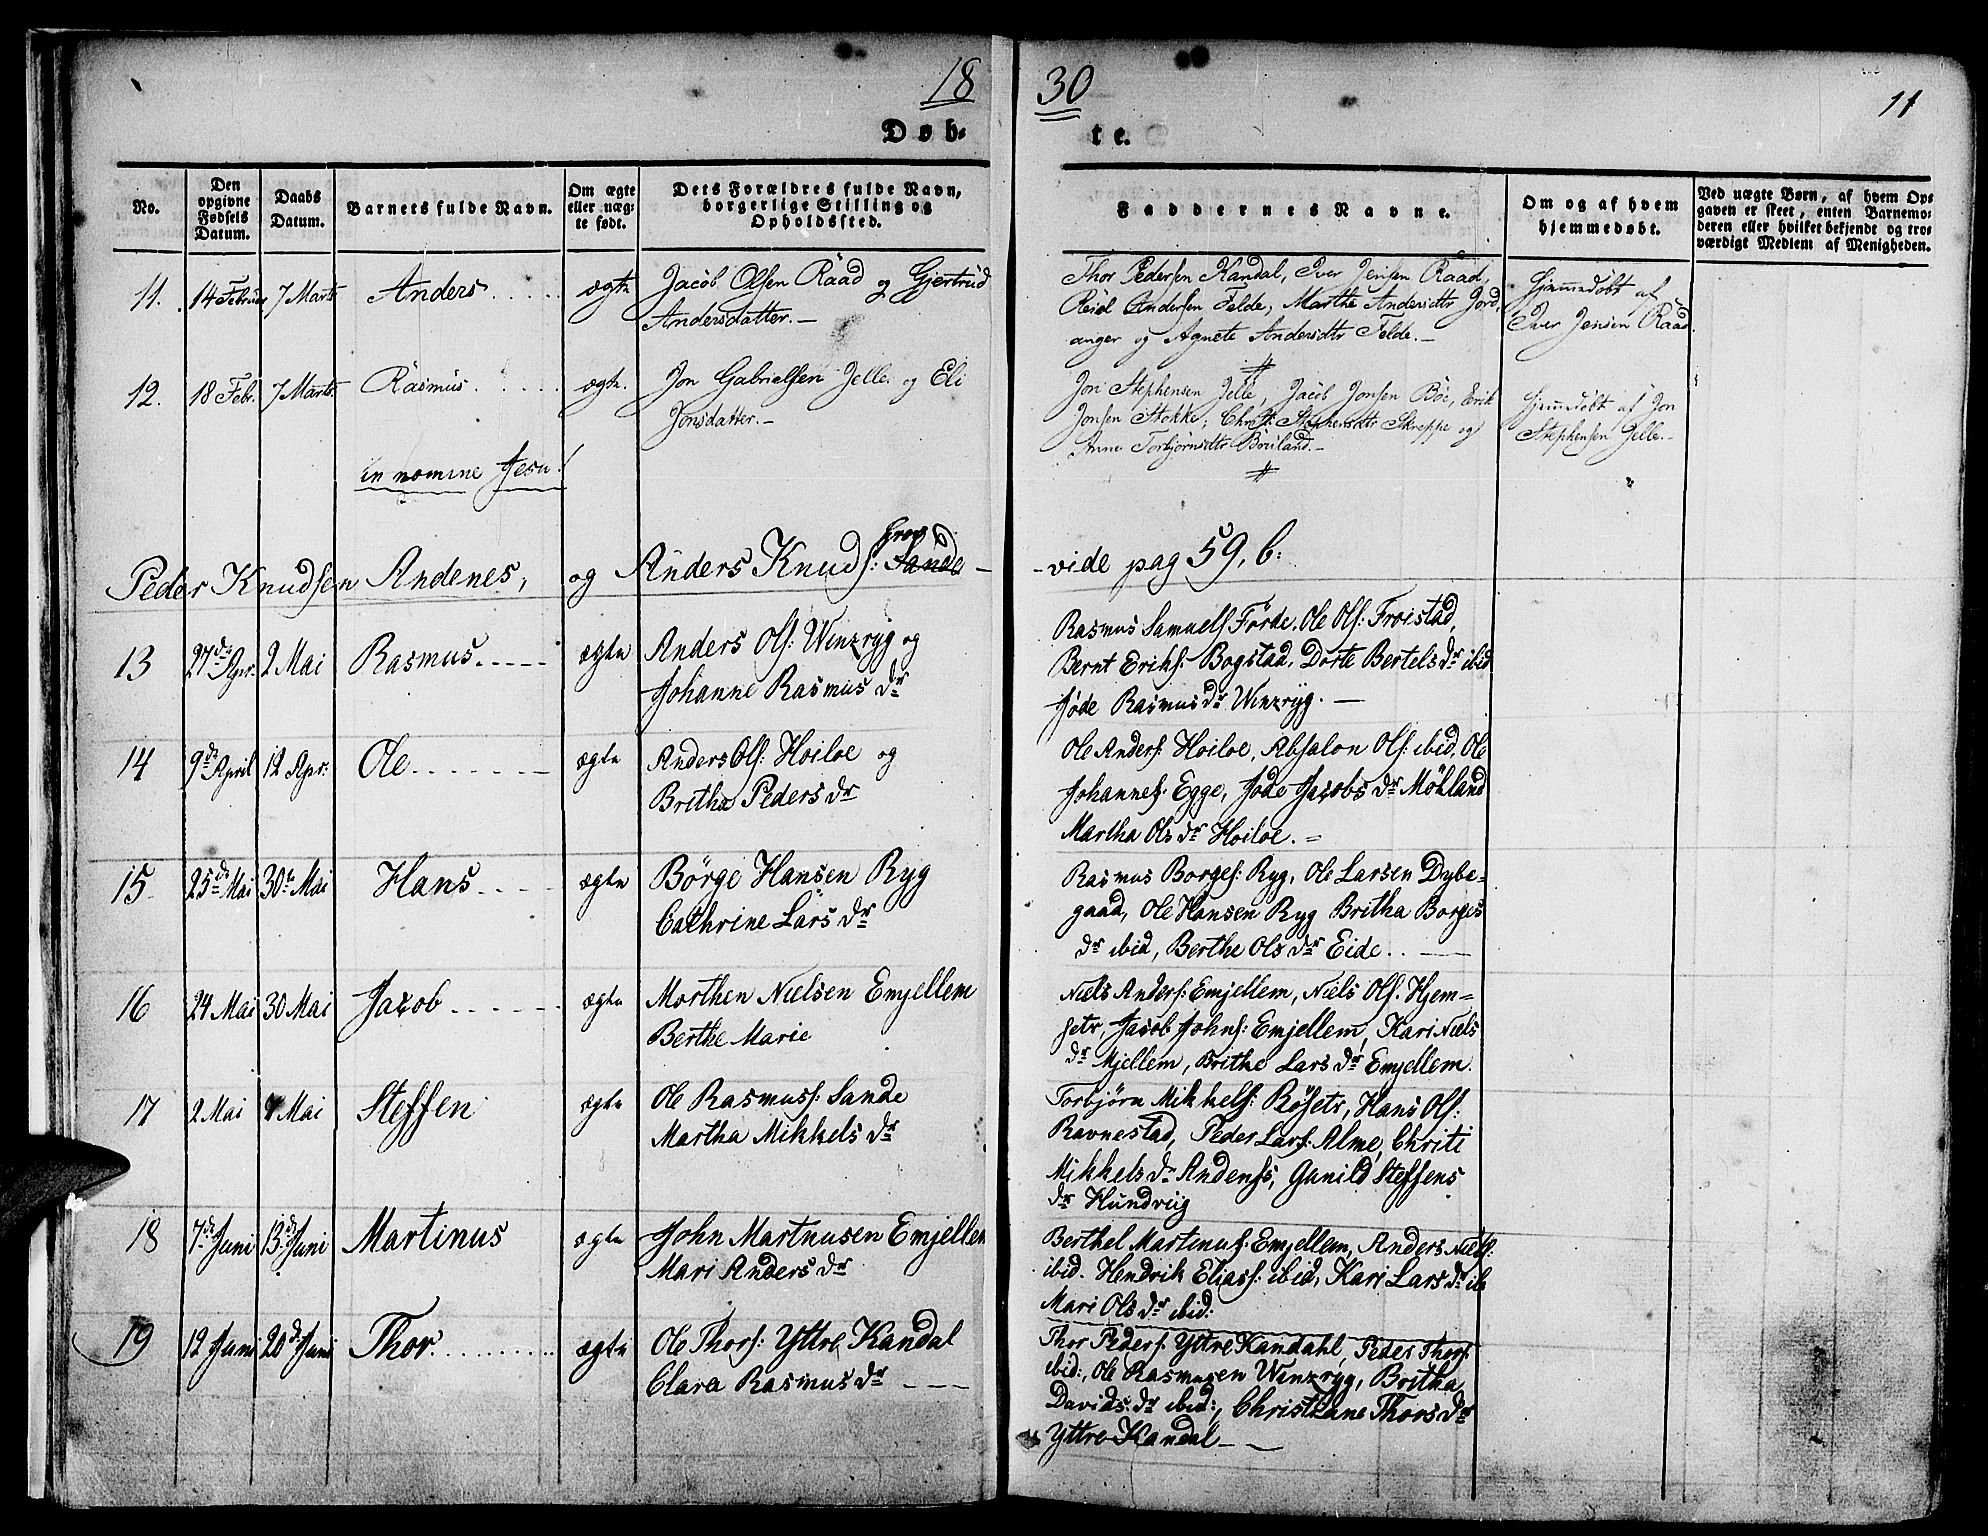 1830
11
Døbte.
No.
Den opgivne Fødsels Datum.
Daabs Datum.
Barnets fulde Navn.
Om ægte eller uægte født.
Dets Forældres fulde Navn, borgerlige Stilling og Opholdssted.
Faddernes Navne.
Om og af hvem hjemmedøbt.
Ved uægte Børn, af hvem Opgaven er skeet, enten Barnemoderen eller hvilket bekjendt og troværdigt Medlem af Menigheden.
11. 14 Februar 7 Marts Anders ægte Jacob Olsen Raad og Gjertrud
Andersdatter.
Thor Pedersen Kandal, Iver Jensen Raad,
Reiel Andersen Felde, Marthe Andersdtr Jord,
anger og Agnete Andersdtr Felde.
Hjemmedøbt af
Iver Jensen Raad.
12. 18 Febr. 7 Marts Rasmus ægte. Jon Gabrielsen Jelle og Eli
Jonsdatter.
Jon Stephensen Jelle, Jacob Jonsen Böe, Erik
Jonsen Stokke, Christ. Stephensdtr Skreppe og
Anne Torbjörnsdtr Bruland.
Hjemedobt af Jon
Stephensen Jelle.
in nomine Jesu!
Peder Knudsen Andenes, og Anders Knuds: Sande
vide pag 59, b:
13 27de Apr. 2 Mai Rasmus ægte Anders Ols: Winzryg og
Johanne Rasmus dr
Rasmus Samuels Förde, Ole Ols: Froistad,
Bernt Eriks: Bogstad, Dorte Bertels dr ibid
Jøde Rasmus dr Winzryg.
14 9de April 12 Apr: Ole ægte Anders Ols: Hoiloe og
Britha Peders dr
Ole Anders: Hoiloe, Absalon Ols: ibid, Ole
Johannes: Egge, Jøde Jacobs dr Mökland
Martha Ols dr Hoiloe.
15 25de Mai 30te Mai Hans ægte Börge Hansen Ryg
Cathrine Lars dr
Rasmus Borges: Ryg, Ole Larsen Dybe-
gaad, Ole Hansen Ryg Britha Borges
dr ibid, Berthe Ols dr Eide.
16 24 Mai 30 Mai Jacob ægte Morthen Nielsen Emjellem
Berthe Marie
Niels Anders: Emjellem, Niels Ols: Hjem-
setr, Jacob Johns: Emjellem, Kari Niels
dr Mjellem, Brithe Lars dr Emjellem.
17 2 Mai Mai Steffen ægte Ole Rasmuss: Sande
Martha Mikkels dr
Torbjörn Mikkels: Rösetr, Hans Ols:
Ravnestad, Peder Lars: Alme, Christi
Mikkels dr Andenes, Gunild Steffens
dr Hundviig
18 7de Juni 13de Juni Martinus ægte John Martnusen Emjellem
Mari Anders dr
Berthel Martinus: Emjellem, Anders Niels:
ibid. Hendrik Elias: ibid, Kari Lars dr ib
Mari Ols dr ibid:
19 12 Juni 20de Juni Thor ægte Ole Thors: Yttre Kandal
Clara Rasmus dr
Thor Peders: Yttre Kandahl, Peder Thors:
ibid:, Ole Rasmusen Winzryg, Britha
Davids: dr ibid:, Christiane Thors dr
Yttre Kandal